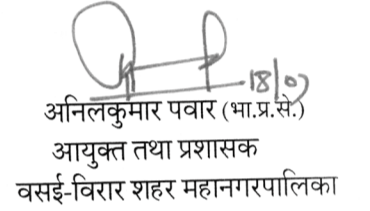 18/07
अनिलकुमार पवार (भा.प्र.से.)
आयुक्त तथा प्रशासक
वसई-विरार शहर महानगरपालिका